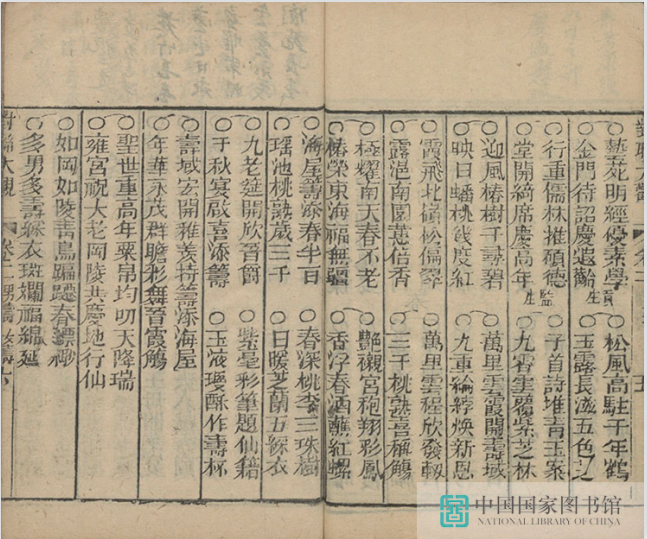 對聯大觀 卷二 五
○藝苑明經優素學 貢生 ○松風高駐千年鶴
○金門待詔慶遐齡 ○玉露長滋五色芝
○行重儒林推碩德 監生 ○千首詩堆青玉案
○堂開綺席慶高年 ○九霄雲覆紫芝林
○迎風椿樹千尋碧 ○萬里雲霞開壽域
○映日蟠桃幾度紅 ○九重綸綍煥新恩
○霞飛北嶺松偏翠 ○萬里雲程欣發軔
○露浥南園蕙倍香 ○三千桃熟喜稱觴
○極耀南天春不老 ○艷襯宮袍翔彩鳳
○椿榮東海福無疆 ○香浮春酒蘸紅螺
○海屋籌添春半百 ○春深桃李三珠樹
○瑤池桃熟歲三千 ○日暖芝蘭五綵衣
○九老筵開欣晉爵 ○紫毫彩筆題仙籍
○千秋宴啟喜添籌 ○玉液瓊酥作壽杯
○壽域宏開雅羨持籌添海屋
○年華永茂群瞻彩舞晉霞觴
○聖世重高年粟帛均叨天降瑞
○雍宮祝大老岡陵共慶地行仙
○如岡如陵青鳥蹁躚春縹緲
○多男多壽綵衣斑斕福綿延
對聯大觀 卷二 男壽 六
中国国家图书馆
NATIONAL LIBRARY OF CHINA